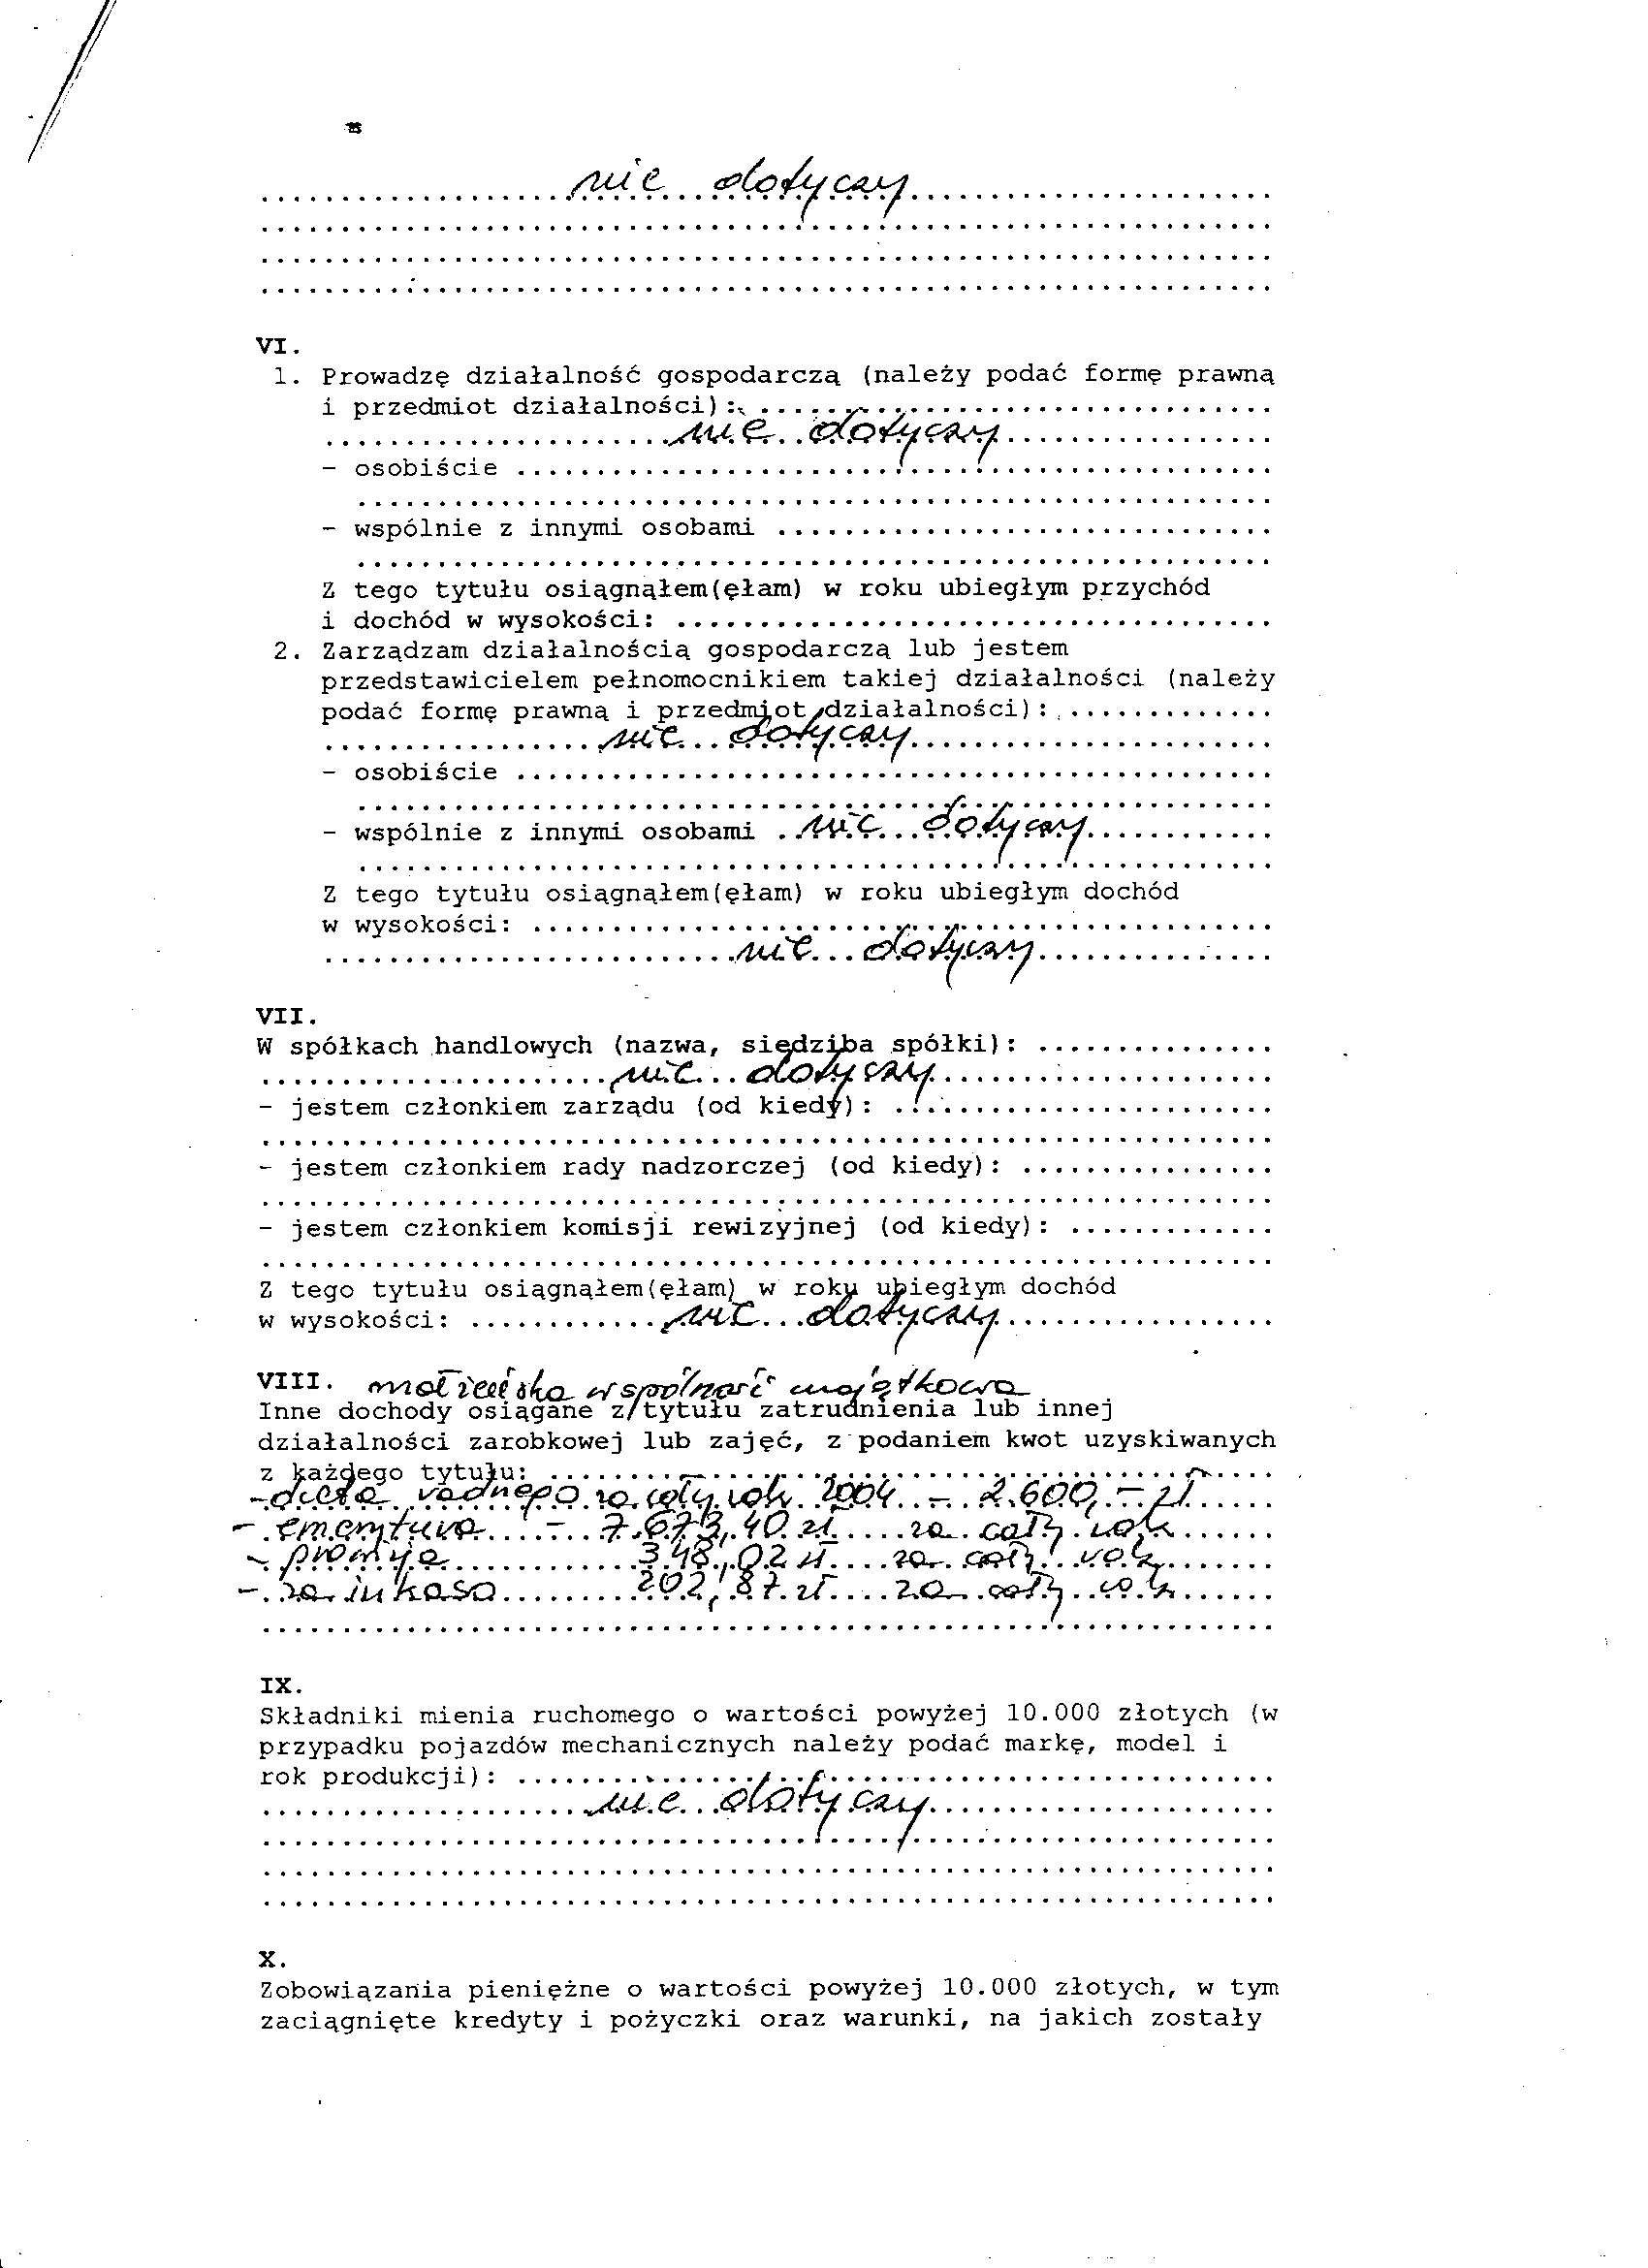 nie dotyczy
VI.
1. Prowadzę działalność gospodarczą (należy podać formę prawną
i przedmiot działalności):
nie dotyczy
- osobiście
- wspólnie z innymi osobami
Z tego tytułu osiągnąłem(ęłam) w roku ubiegłym przychód
i dochód w wysokości:
2. Zarządzam działalnością gospodarczą lub jestem
przedstawicielem pełnomocnikiem takiej działalności (należy
podać formę prawną i przedmiot działalności):
nie dotyczy
- osobiście
- wspólnie z innymi osobami nie dotyczy
Z tego tytułu osiągnąłem(ęłam) w roku ubiegłym dochód
w wysokości:
nie dotyczy
VII.
W spółkach handlowych (nazwa, siedziba spółki):
nie dotyczy
- jestem członkiem zarządu (od kiedy):
- jestem członkiem rady nadzorczej (od kiedy):
- jestem członkiem komisji rewizyjnej (od kiedy):
Z tego tytułu osiągnąłem(ęłam) w roku ubiegłym dochód
w wysokości: nie dotyczy
VIII. małżeńska wspólność majątkowa
Inne dochody osiągane z tytułu zatrudnienia lub innej
działalności zarobkowej lub zajęć, z podaniem kwot uzyskiwanych
z każdego tytułu:
- dieta radnego za cały rok 2004 - 2.600,- zł
- emerytura - 7.673,40 zł za cały rok
- prowizja 348,02 zł za cały rok
- za inkaso 202,87 zł za cały rok
IX.
Składniki mienia ruchomego o wartości powyżej 10.000 złotych (w
przypadku pojazdów mechanicznych należy podać markę, model i
rok produkcji):
nie dotyczy
X.
Zobowiązania pieniężne o wartości powyżej 10.000 złotych, w tym
zaciągnięte kredyty i pożyczki oraz warunki, na jakich zostały